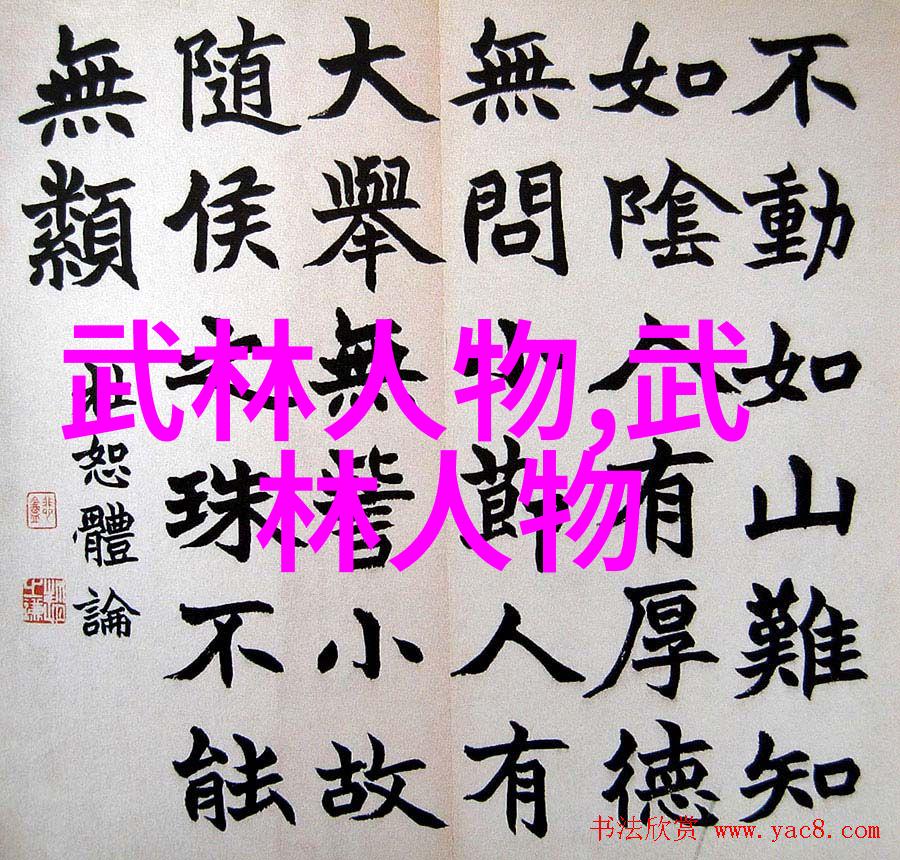 不動如山難知
如陰人有厚德
無問小節人有
大舉無訾小故
隨侯之珠不能
無纇
杜恕體論
武林人物,武
林人物
书法欣赏 www.yac8.com